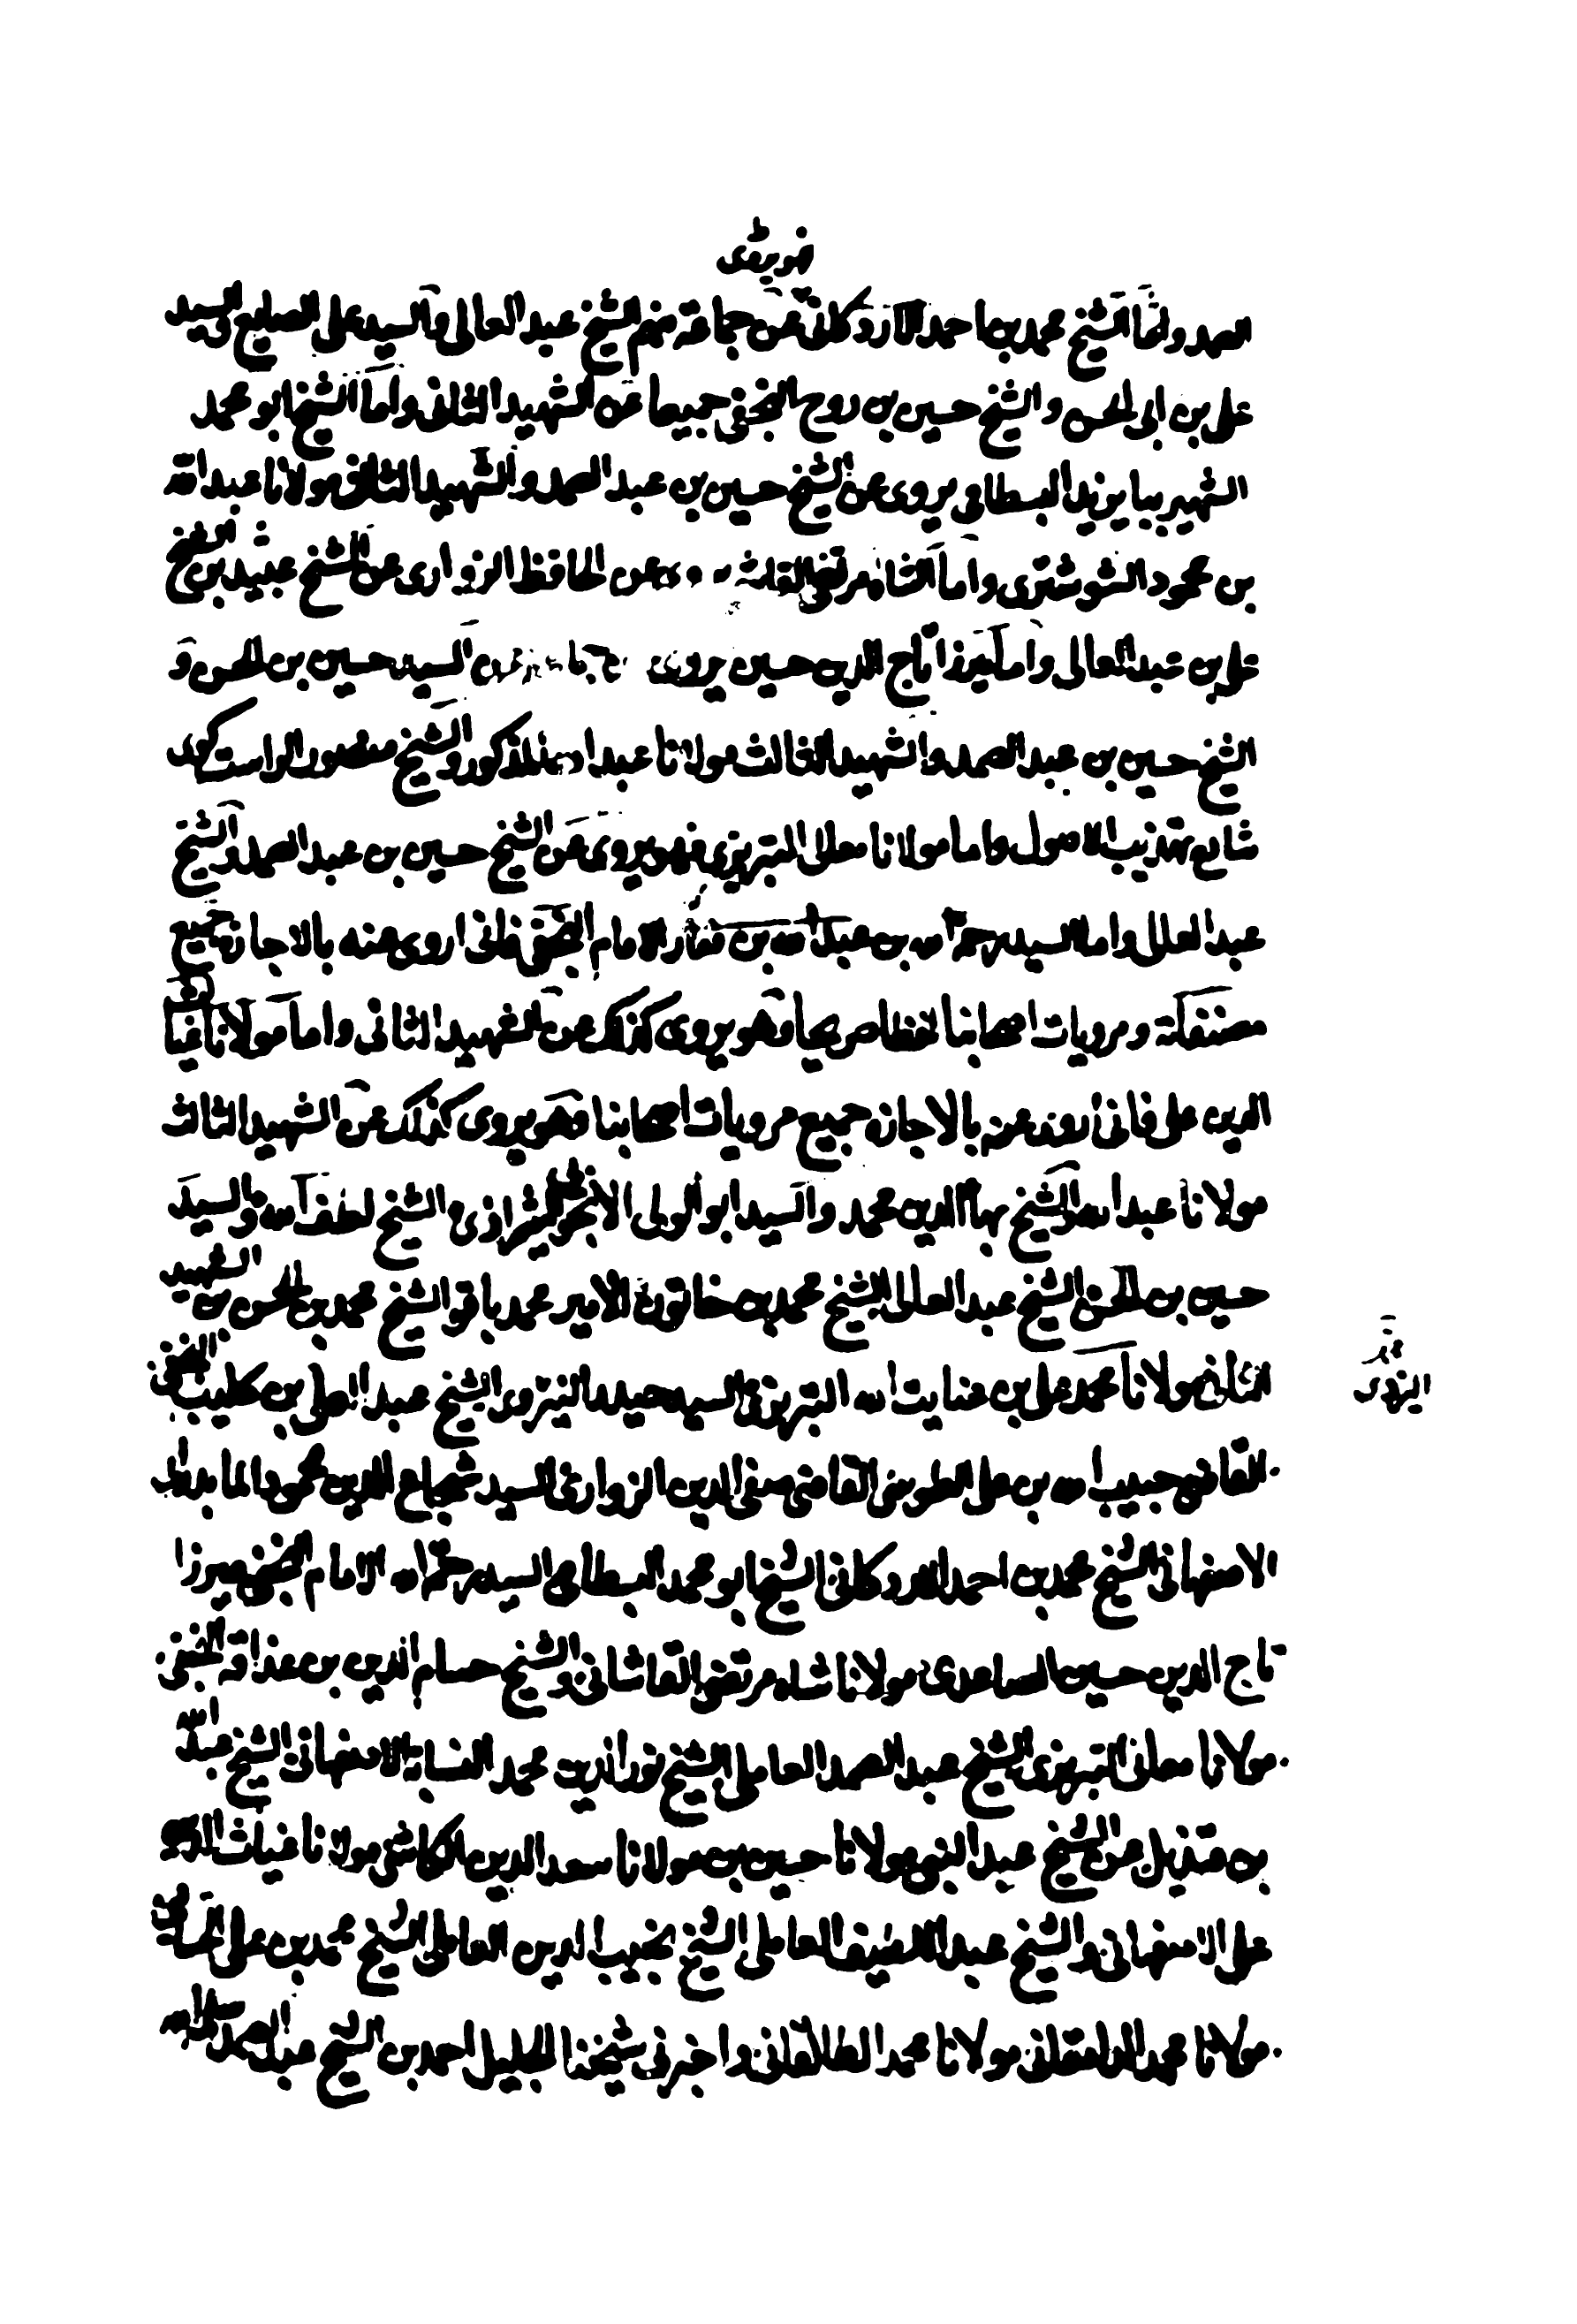 فهو يروى
الصمد واما الشيخ محمد بن احمد الاردكانى عن جماعة منهم الشيخ عبد العالى والسيد على الصايغ والسيد
على بن ابى الحسن والشيخ حسين بن روح النجفى جميعا عن الشهيد الثانى واما الشيخ ابو محمد
الشهير ببايزيد البسطامى يروى عن الشيخ حسين بن عبد الصمد والشهيد الثالث مولانا عبد الله
بن محمود الشوشترى واما الشاه مرتضى عن الحافظ الزوارى عن الشيخ بن الشيخ
على بن عبد العالى واما ميرزا تاج الدين حسين يروى عن السيد حسين بن الحسن و
الشيخ حسين بن عبد الصمد والشهيد الثالث مولانا عبد الله المذكور والشيخ منصور الراست كوى
شارح تهذيب الاصول واما مولانا معانى التبريزى فهو يروى عن الشيخ حسين بن عبد الصمد والشيخ
عبد العالى واما السيد رحمة الله بن عبد الله بن الامام النجفى فانى اروى عنه بالاجازة جميع
مصنفاته ومرويات اصحابنا وهو يروى كذلك عن الشهيد الثانى واما مولانا غياث
الدين على فانى اروى عنه بالاجازة جميع مرويات اصحابنا وهو يروى كذلك عن الشهيد الثالث
مولانا عبد الله والشيخ بهاء الدين محمد والسيد ابو الولى الانجو الشيرازى والشيخ لطف الله والسيد
حسين بن الحسن والشيخ عبد العالى والشيخ محمد بن خاتون والامير محمد باقر والشيخ محمد بن الحسن بن الشهيد
الثانى مولانا محمد على بن عنايت الله التبريزى السيد حيدر والشيخ عبد العلى بن كليب النجفى
القاضى حبيب الله بن على الطوسى القاضى صفى الدين الزوارى السيد شجاع الدين محمود
الاصفهانى الشيخ محمد بن احمد الاردكانى الشيخ ابو محمد البسطامى السيد رحمة الله الامام النجفى ميرزا
تاج الدين حسين الصاعدى مولانا شاه مرتضى القاشانى والشيخ حسام الدين بن عذاقة النجفى
مولانا معانى التبريزى الشيخ عبد الصمد العاملى الشيخ نور الدين محمد النسابة الاصفهانى الشيخ عبد الله
بن قنديل عن الشيخ عبد النبى مولانا حسين بن مولانا سعد الدين الكاشى مولانا غياث الدين
على الاصفهانى والشيخ عبد اللطيف العاملى الشيخ نجيب الدين العاملى الشيخ محمد بن على
مولانا محمد مولانا محمد الطالقانى واخبرنى شيخنا الجليل احمد بن الشيخ عبد الصمد